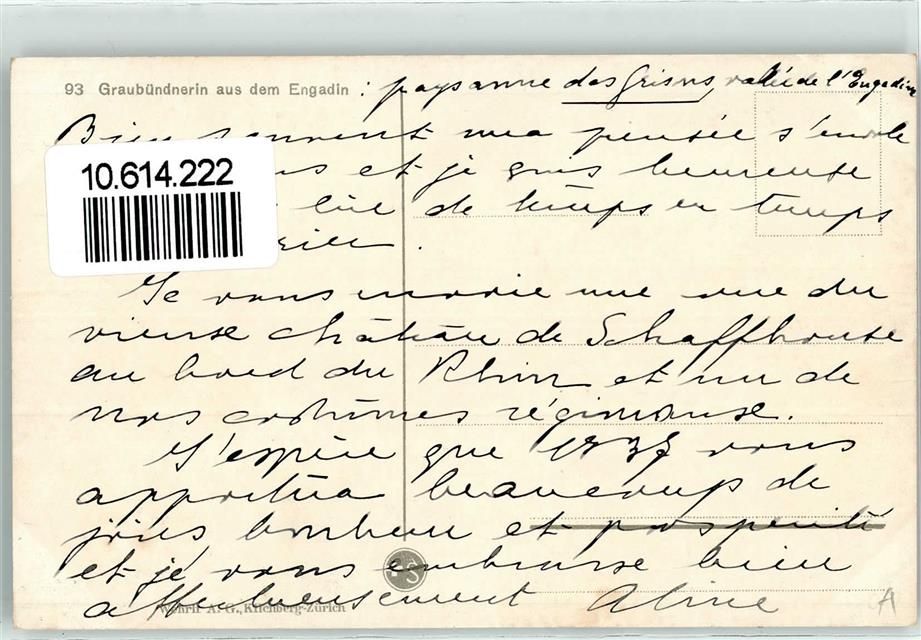 93 Graubündnerin aus dem Engadin : paysanne des Grisons, vallée de l'Engadine
Bien souvent ma pensée s'envole
10.614.222
et je suis heureuse
lire de temps en temps
Je vous envoie une vue du
vieux château de Schaffhouse
au bord du Rhin et un de
nos costumes régionaux.
J'espère que 1937 vous
apportera beaucoup de
joies bonheur et prosperité
et je vous embrasse bien
affectueusement Aline
Wehrli A.-G., Kilchberg-Zürich
A